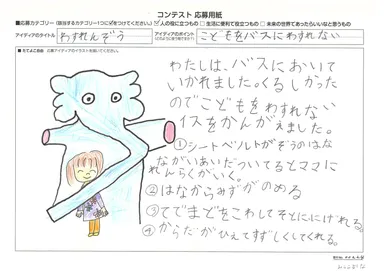 コンテスト 応募用紙
■応募カテゴリー（該当するカテゴリー1つに☑をつけてください） ☑人の役に立つもの □生活に便利で役立つもの □未来の世界であったらいいなと思うもの
アイディアのタイトル わすれんぞう アイディアのポイント こどもをバスにわすれない
わたしは、バスにおいて
いかれました。くるしかった
のでこどもをわすれない
イスをかんがえました。
①シートベルトがぞうのはな
ながいあいだついてるとママにれ
んらくがいく。
②はながらみずがのめる
③てでまどをこわしてそとににげれる。
④からだがひえてすずしくしてくれる。